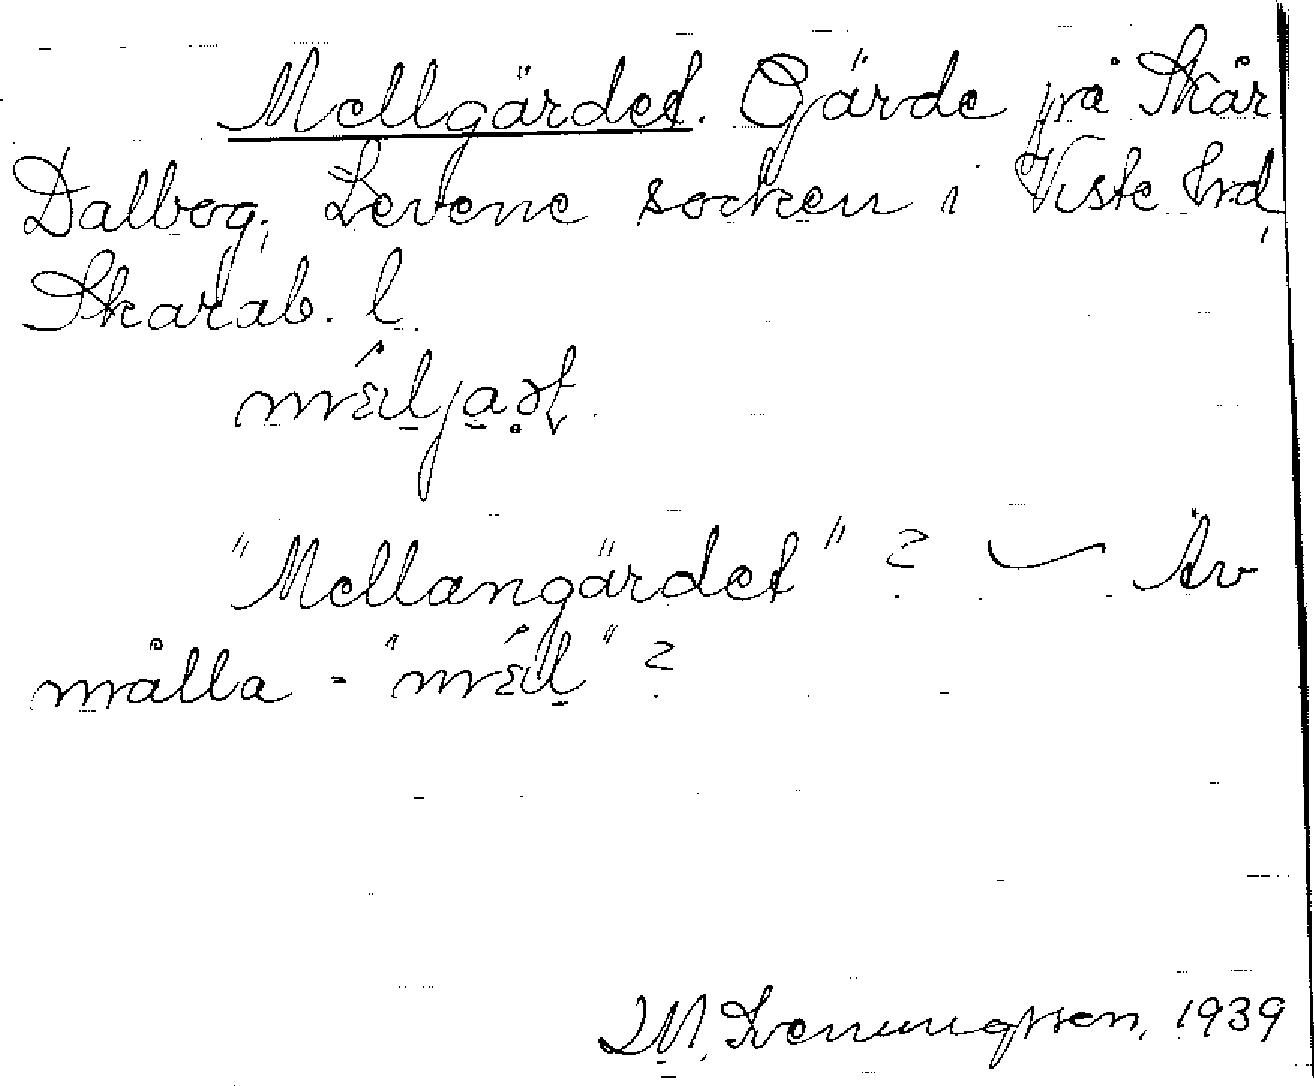 Mellgärdet. Gärde på Skår
Dalbog, Levene socken i Viste hrd,
Skarab. l.
"Mellangärdet" ? — Av
målla - ?
Svenungsson, 1939